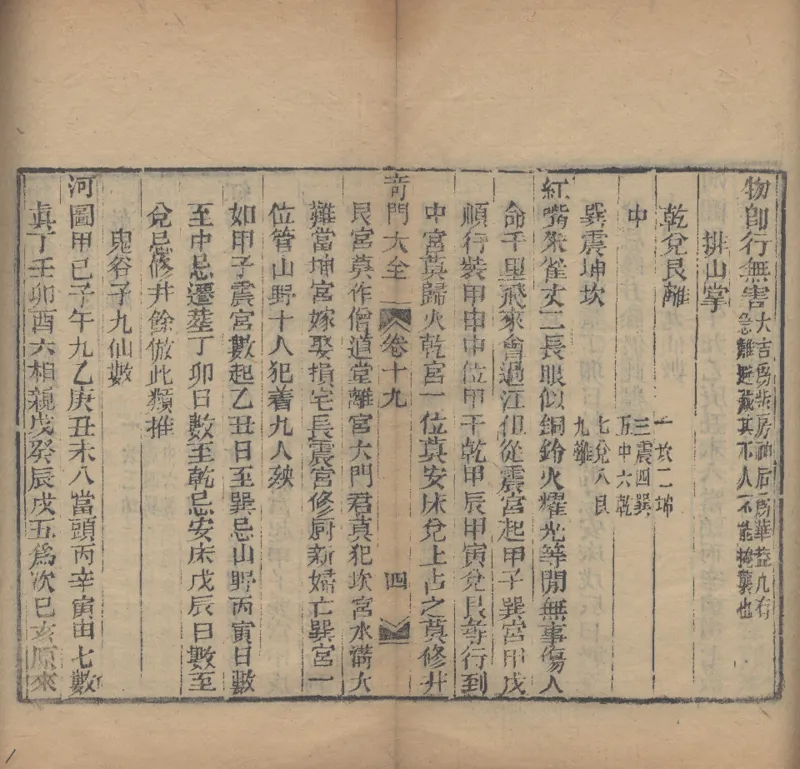 物卽行無害大吉爲紫房神后爲華蓋九有
急難避藏其下人不能掩襲也
排山掌
乾兌艮離 一坎二坤
三震四巽
中 五中六乾
七兌八艮
巽震坤坎 九離
紅嘴朱雀丈二長眼似銅鈴火耀光等閒無事傷人
命千里飛來會過江但從震宮起甲子巽宮甲戌
順行裝甲申中位甲午乾甲辰甲寅兌艮尋行到
中宮莫歸火乾宮一位莫安床兌上占之莫修井
奇門大全 卷十九 四
艮宮莫作僧道堂離宮大門君莫犯坎宮水溝大
難當坤宮嫁娶損宅長震宮修厨新婦亡巽宮一
位管山野十人犯着九人殃
如甲子震宮數起乙丑日至巽忌山野丙寅日數
至中忌遷葬丁卯日數至乾忌安床戊辰日數至
兌忌修井餘倣此類推
鬼谷子九仙數
河圖甲己子午九乙庚丑未八當頭丙辛寅申七數
眞丁壬卯酉六相親戊癸辰戌五爲次巳亥原來